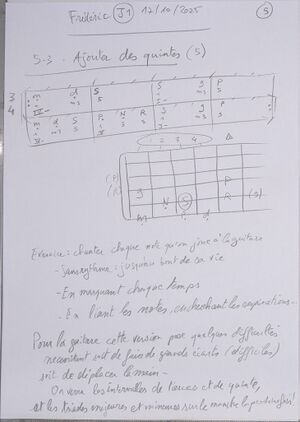 Frédéric J1 17/10/2025 5
5-3 - Ajouter des quintes (5)
3 m d S S g P
4 m d S P N R S g P
1 2 3 4
(P)
(R) g P
N S R (S)
m P d
Exercice : chanter chaque note qu'on joue à la guitare
- Sans rythme : jusqu'au bout de sa vie
- En marquant chaque temps
- En liant les notes, en cachant les respirations...
Pour la guitare cette version pose quelques difficultés
nécessitant soit de faire de grands écarts (difficiles)
soit de déplacer la main -
On verra les intervalles de tierces et de quinte,
et les triades majeures et mineures sur le manche la prochaine fois !